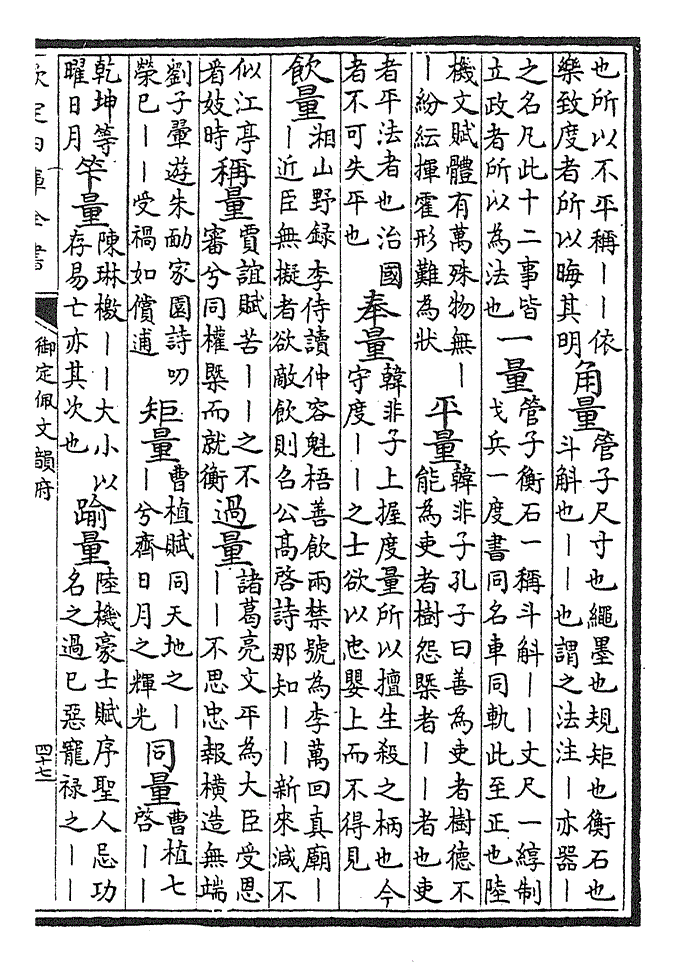 也所以不平稱——依
樂致度者所以晦其明
角量
管子尺寸也繩墨也規矩也衡石也
斗斛也——也謂之法注—亦器—
之名凡此十二事皆
立政者所以為法也
一量
管子衡石一稱斗斛——丈尺一綧制
戈兵一度書同名車同軌此至正也陸
機文賦體有萬殊物無—
—紛紜揮霍形難為狀
平量
韓非子孔子曰善為吏者樹德不
能為吏者樹怨槩者——者也吏
者平法者也治國
者不可失平也
奉量
韓非子上握度量所以擅生殺之柄也今
守度——之士欲以忠嬰上而不得見
飲量
湘山野録李侍讀仲容魁梧善飲兩禁號為李萬回真廟—
—近臣無擬者欲敵飲則召公髙啓詩那知——新來減不
似江亭
看妓時
稱量
賈誼賦苦——之不
審兮同權槩而就衡
過量
諸葛亮文平為大臣受恩
——不思忠報横造無端
劉子翬遊朱勔家園詩叨
榮已——受禍如償逋
矩量
曹植賦同天地之—
—兮齊日月之輝光
同量
曹植七
啓——
乾坤等
曜日月
笇量
陳琳檄——大小以
存易亡亦其次也
踰量
陸機豪士賦序聖人忌功
名之過已惡寵禄之——
欽定四庫全書
御定佩文韻府
四十七